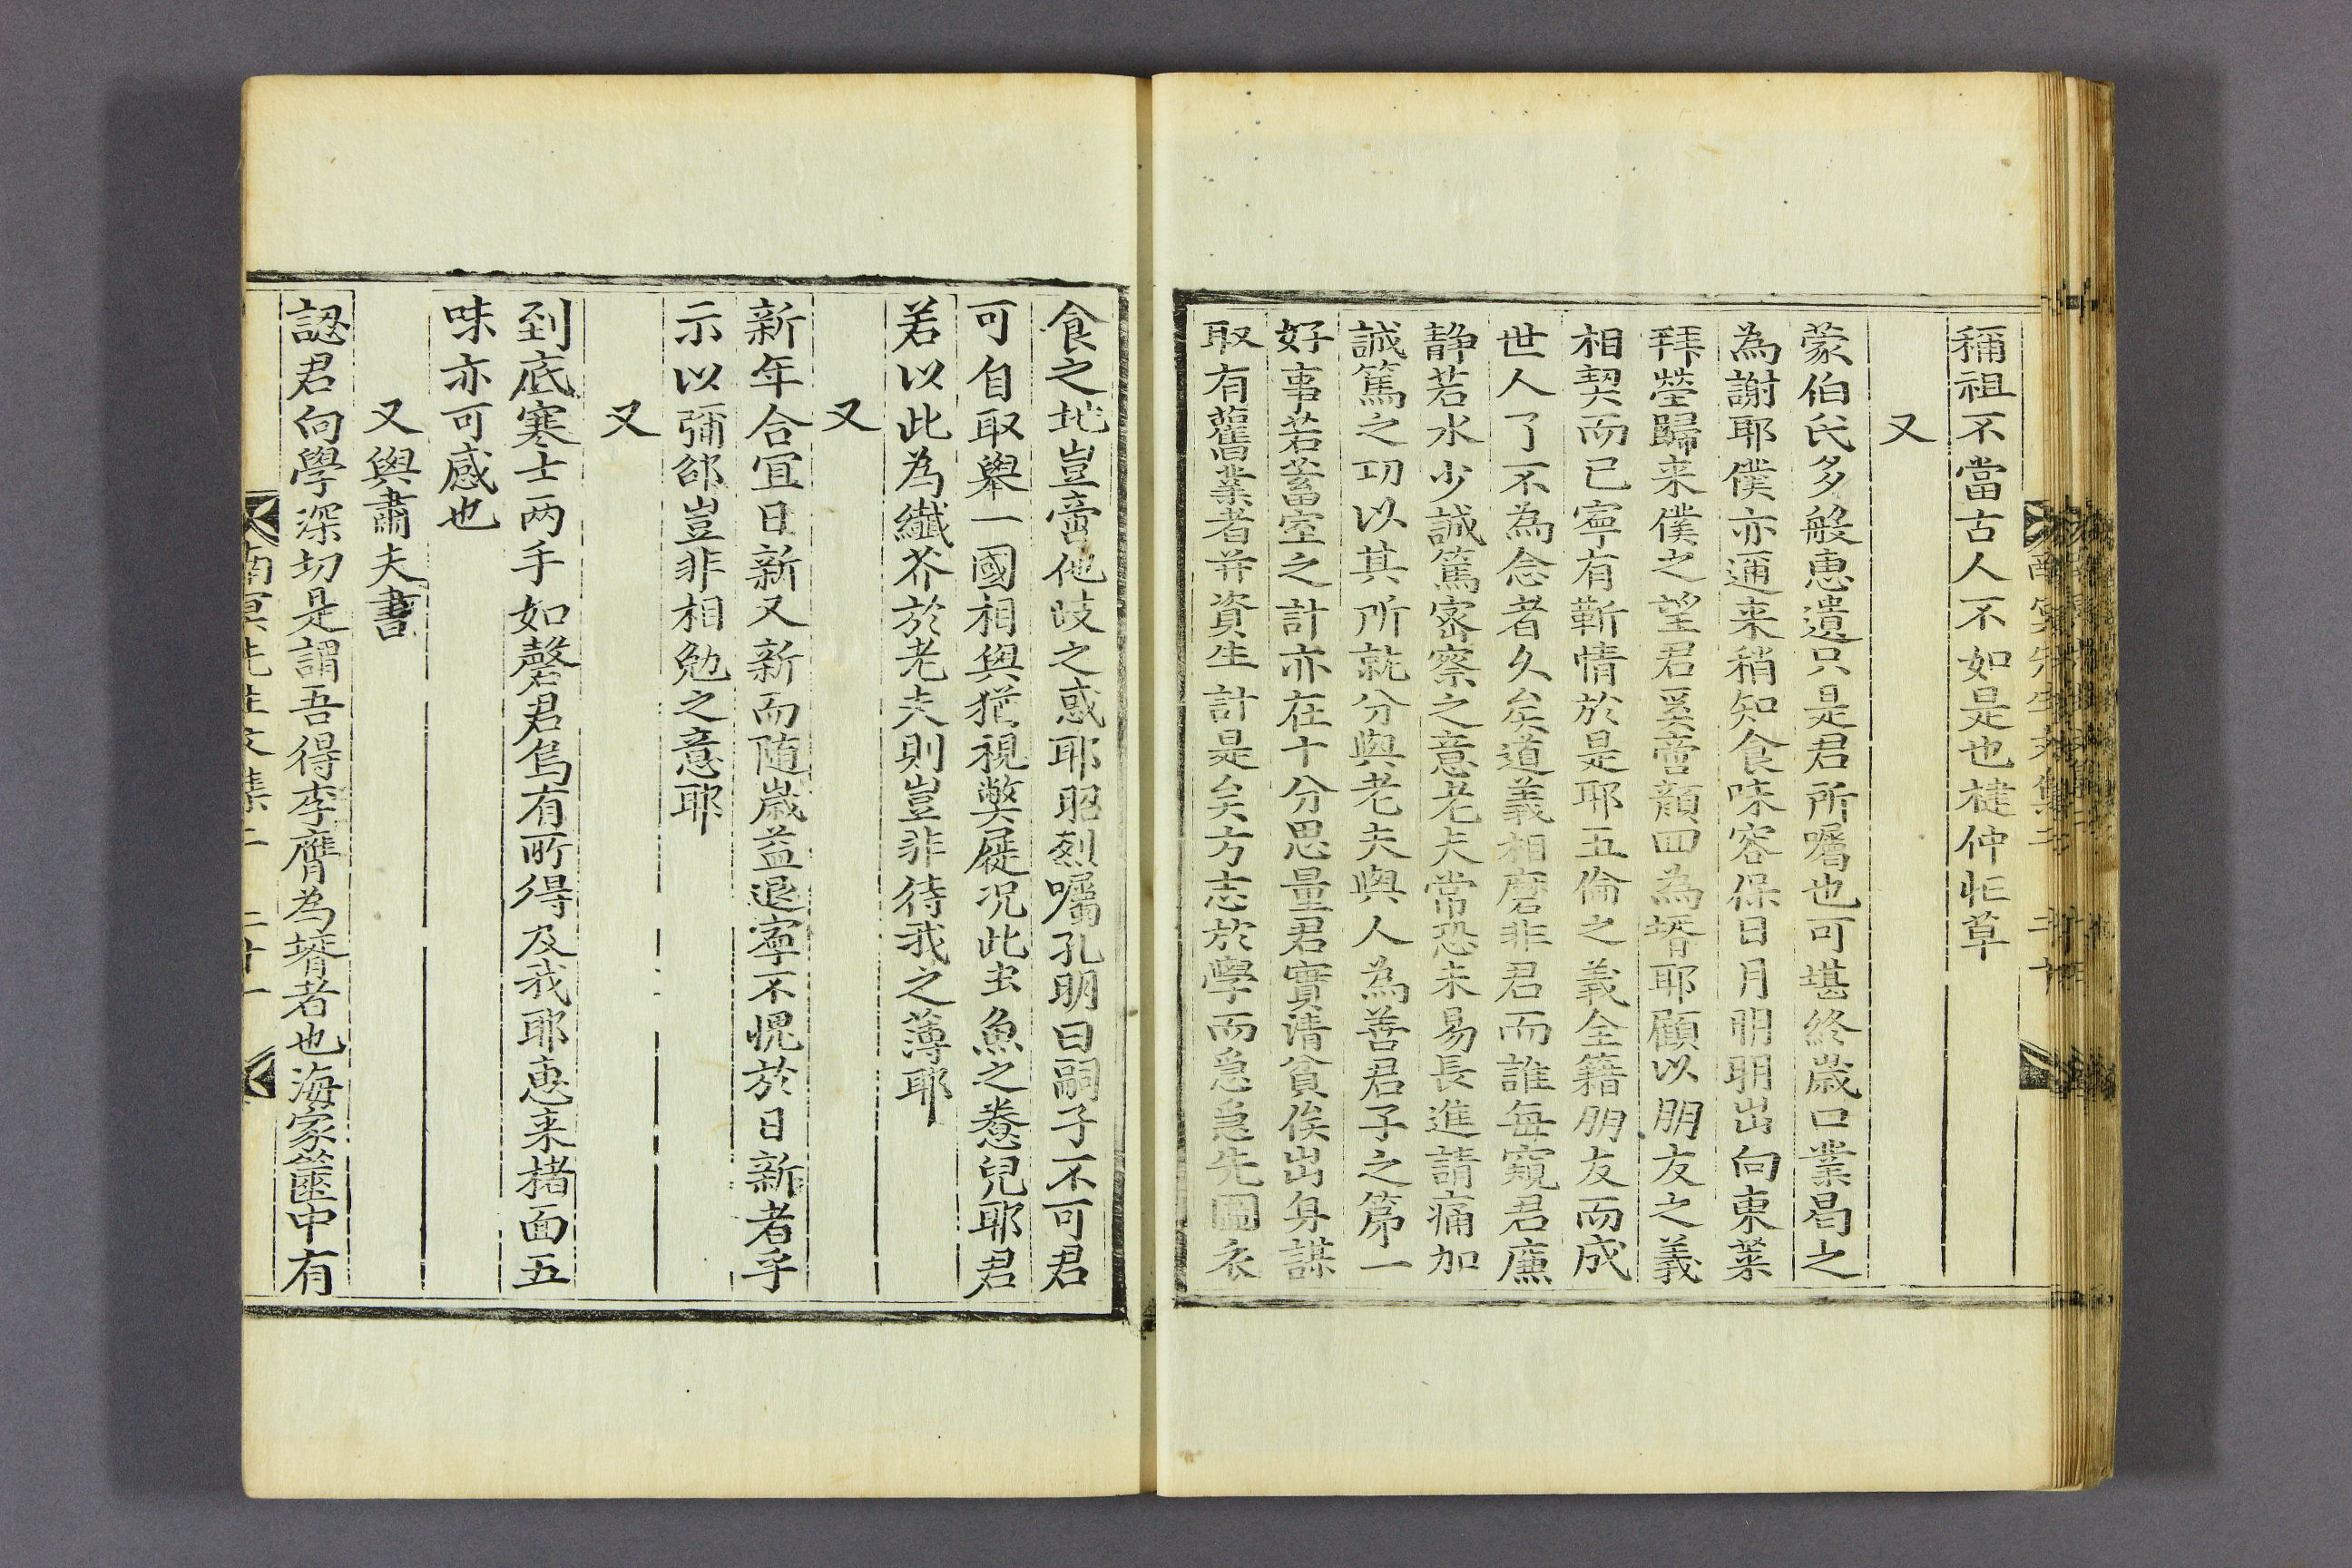 稱祖不當古人不如是也楗仲忙草
又
蒙伯氏多般惠遺只是君所囑也可堪終歲口業曷之
為謝耶僕亦邇来稍知食味容保日月明明岀向東葉
拜塋歸来僕之望君奚啻顔回為壻耶顧以朋友之義
相契而已寧有靳情於是耶五倫之義全籍朋友而成
世人了不為念者久矣道義相磨非君而誰每窺君廉
静若水少誠篤密察之意老夫常恐未易長進請痛加
誠篤之功以其所就分與老夫與人為善君子之第一
好事若蓄室之計亦在十分思量君實清貧俟岀身謀
取有舊業者并資生計是矣方志於學而急急先圖衣
食之地豈啻他歧之惑耶昭烈囑孔明曰嗣子不可君
可自取舉一國相與猶視弊屣况此虫魚之養兒耶君
若以此為纖芥於老夫則豈非待我之薄耶
又
新年合宜日新又新而随歲益退寧不愧於日新者乎
示以彌卲豈非相勉之意耶
又
到底寒士两手如罄君烏有所得及我耶惠来楮面五
味亦可感也
又與肅夫書
認君向學深切是謂吾得李膺為壻者也海家篋中有
南冥先生文集二 二十一